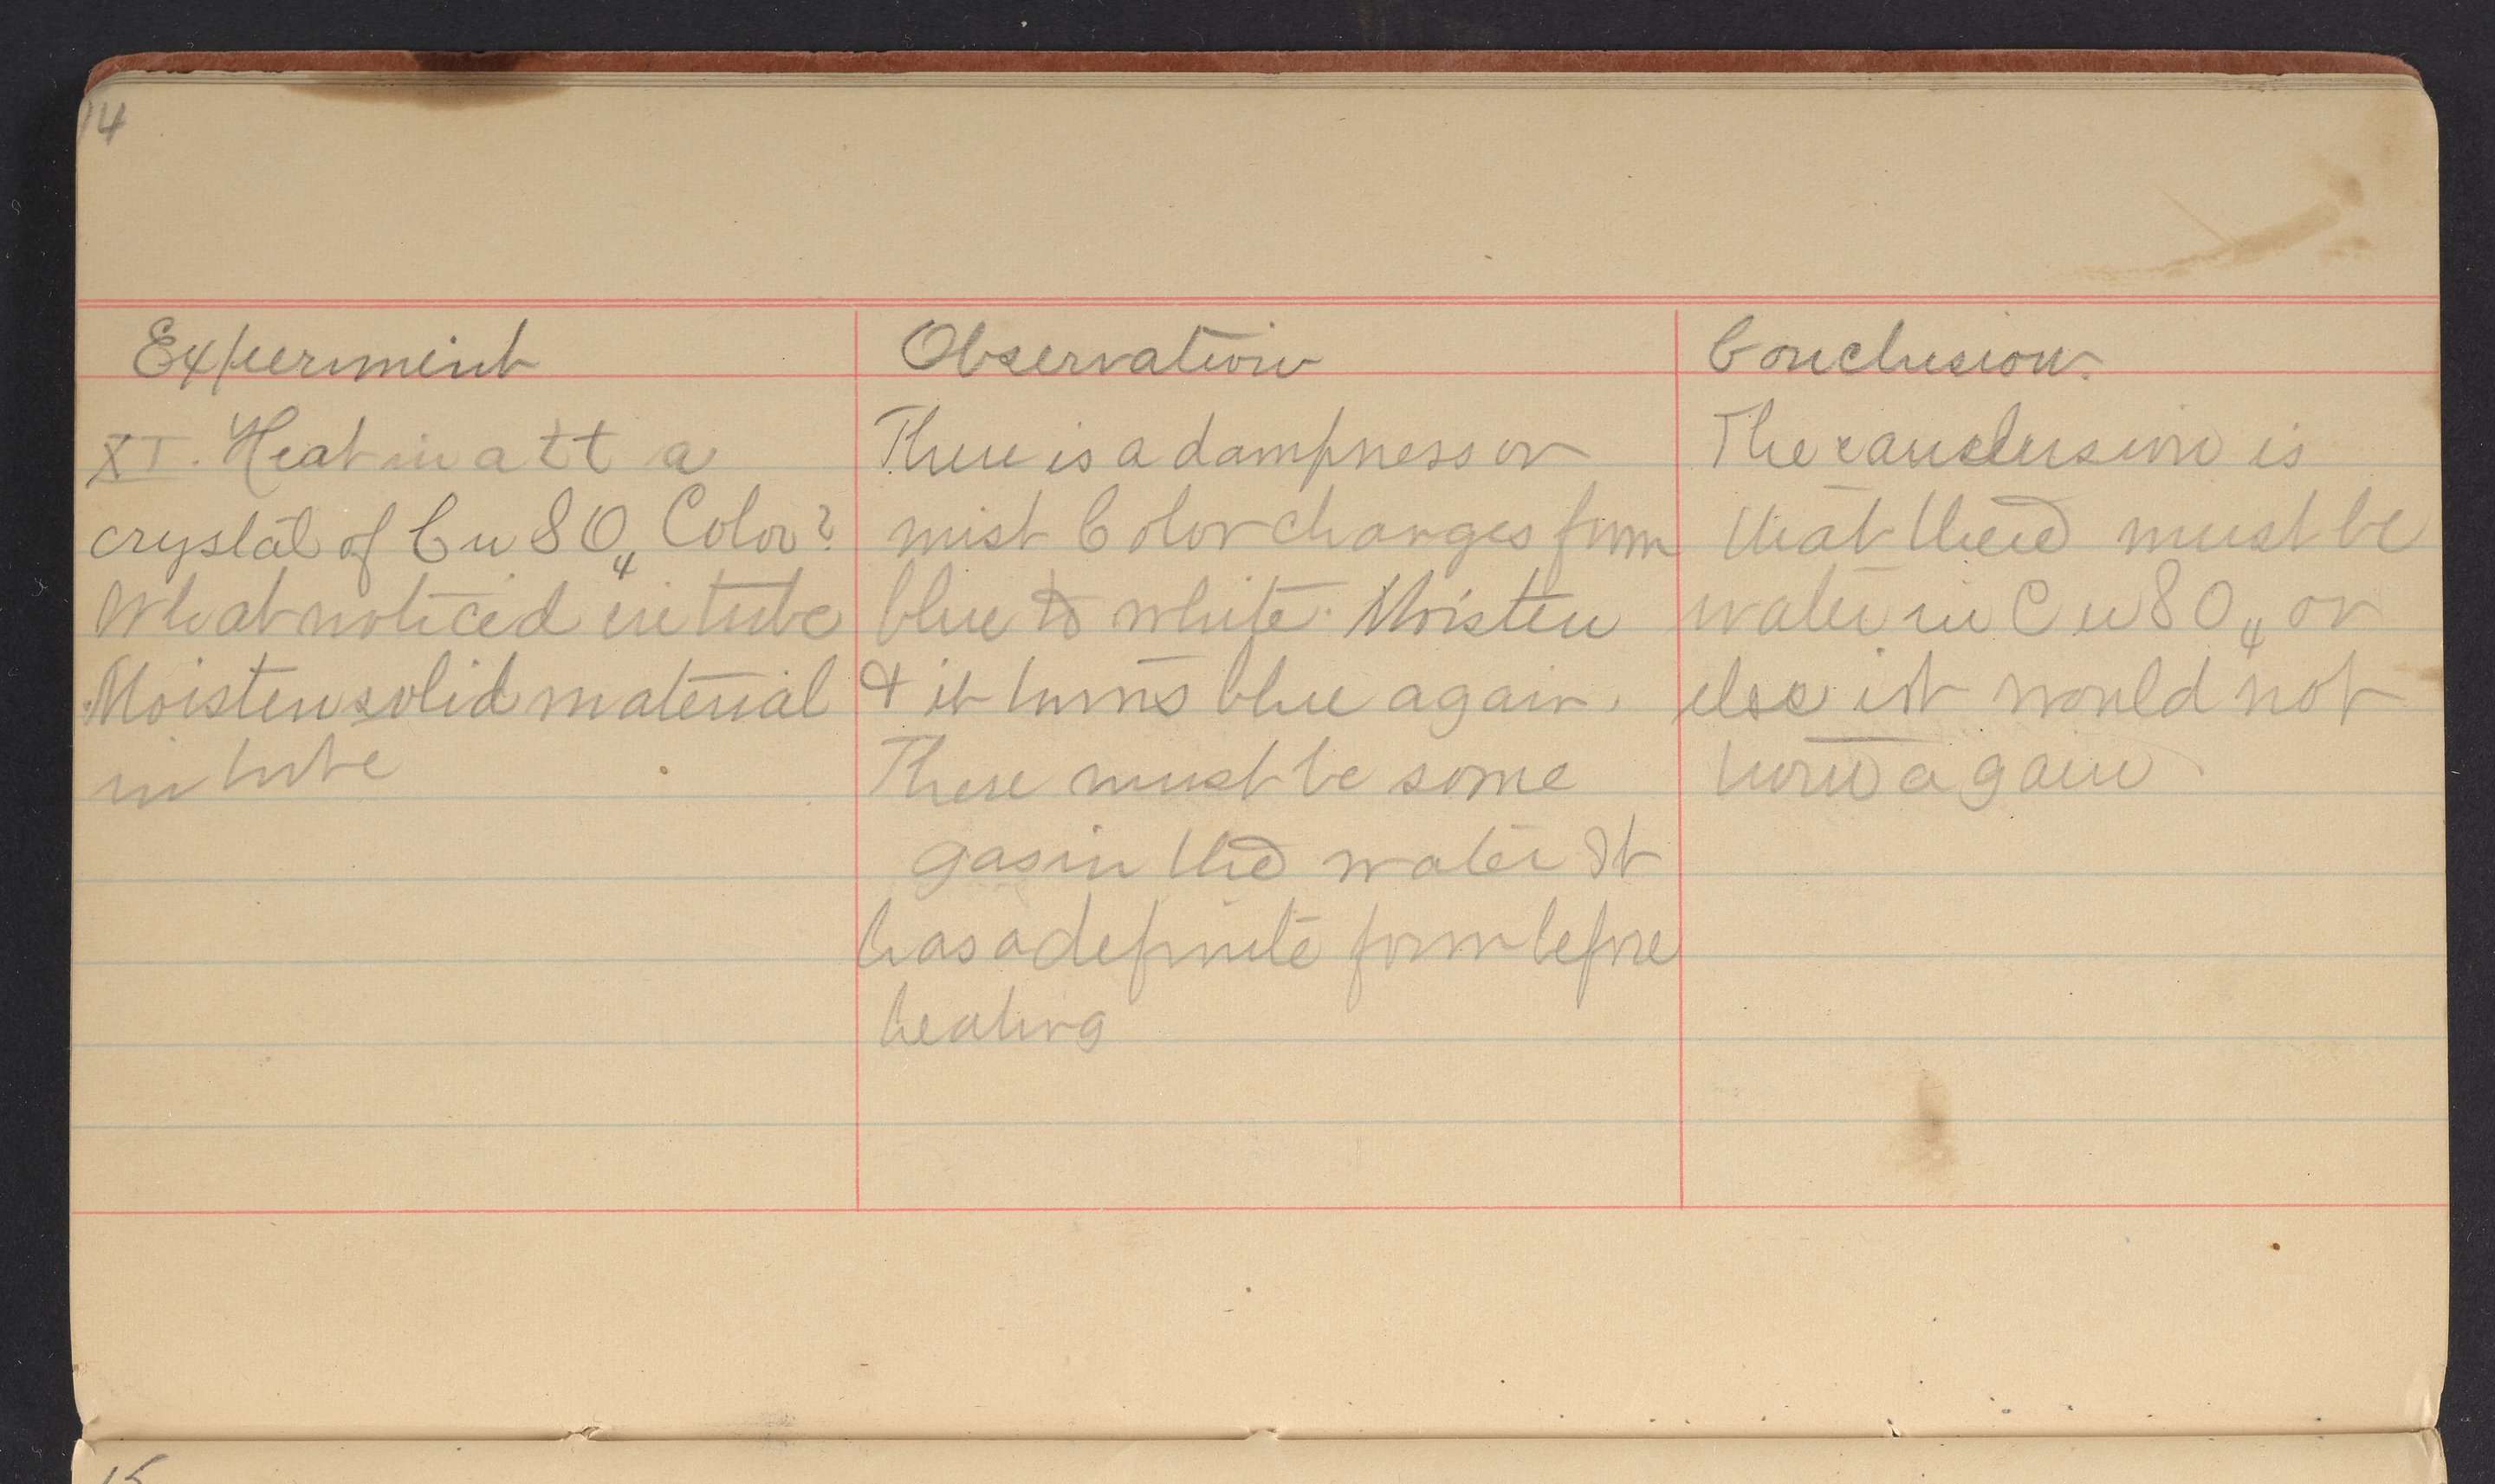 14
Experiment
XI. Heat in a t t a
crystal of CuSO4 Color?
What noticed in tube
Moisten solid material
in tube
Observation
There is a dampness or
mist Color changes from
blue to white. Moisten
& it turns blue again.
There must be some
gas in the water It
has a definite form before
heating
Conclusion.
The conclusion is
that there must be
water in CuSO4 or
else it would not
turn again
15